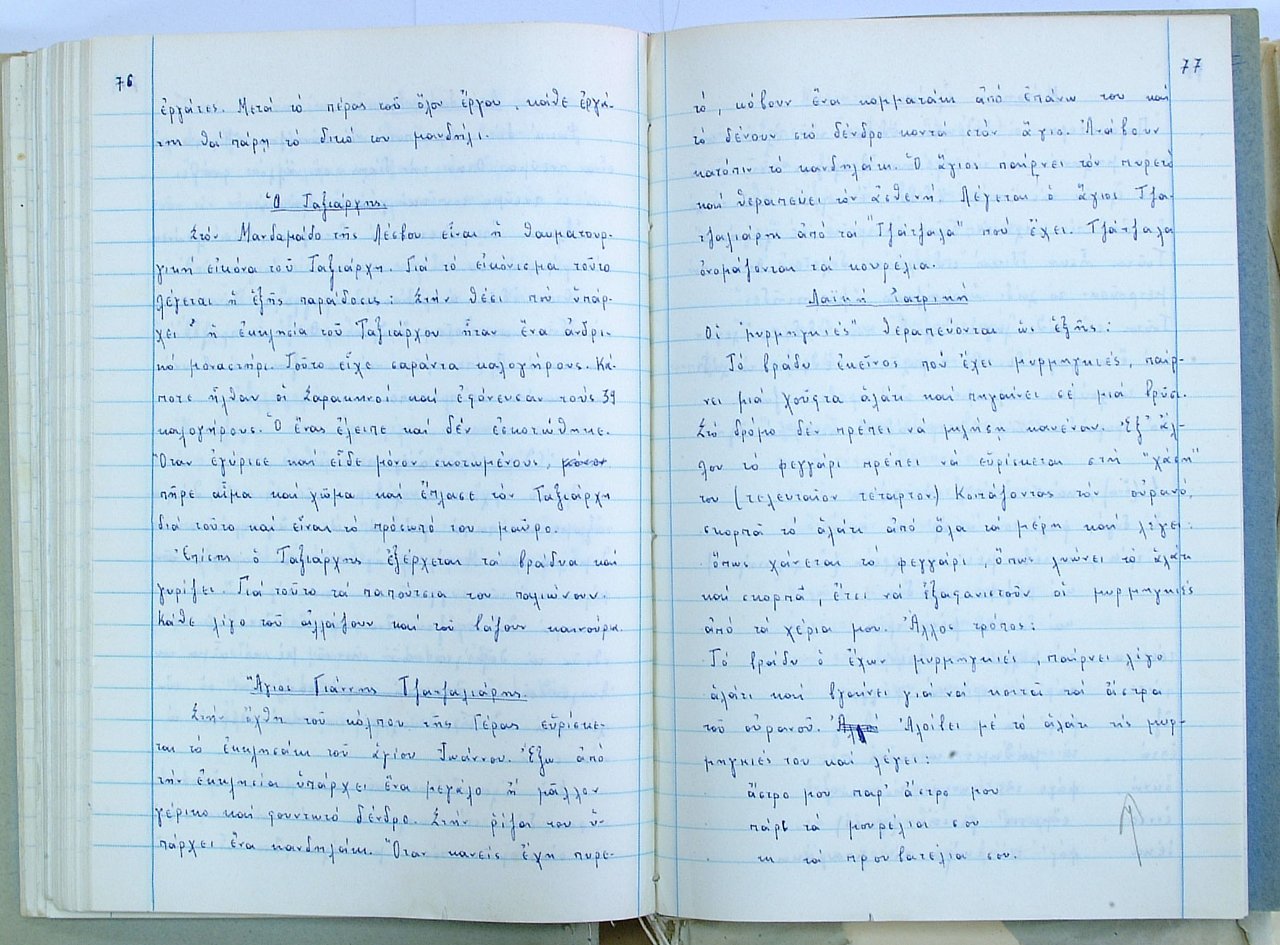 76
ἐργάτες. Μετά τό πέρας τοῦ ὅλου ἔργου, κάθε ἐργά-
της θά πάρῃ τό δικό του μανδήλι.
Ὁ Ταξιάρχης.
Στόν Μανδαμάδο τῆς Λέσβου εἶναι ἡ θαυματουρ-
γική εἰκόνα τοῦ Ταξιάρχη. Γιά τό εἰκόνισμα τοῦτο
λέγεται ἡ ἑξῆς παράδοσις: Στήν θέσι πού ὑπάρ-
χει ἡ ἐκκλησία τοῦ Ταξιάρχου ἦταν ἕνα ἀνδρι-
κό μοναστήρι. Τοῦτο εἶχε σαράντα καλογήρους. Κά-
ποτε ἦλθαν οἱ Σαρακηνοί καί ἐφόνευσαν τούς 39
καλογήρους. Ὁ ἕνας ἔλειπε καί δέν ἐσκοτώθηκε.
Ὅταν ἐγύρισε καί εἶδε μόνον σκοτωμένους,
πῆρε αἷμα καί χῶμα καί ἔπλασε τόν Ταξιάρχη
διά τοῦτο καί εἶναι τό πρόσωπό του μαῦρο.
Ἐπίσης ὁ Ταξιάρχης ἐξέρχεται τά βράδυα καί
γυρίζει. Γιά τοῦτο τά παπούτσια του παλιώνουν.
Κάθε λίγο τοῦ ἀλλάζουν καί τοῦ βάζουν καινούρια.
Ἅγιος Γιάννης Τζατζαλιάρης.
Στήν ὄχθη τοῦ κόλπου τῆς Γέρας εὑρίσκε-
ται τό ἐκκλησάκι τοῦ ἁγίου Ἰωάννου. Ἔξω ἀπό
τήν ἐκκλησία ὑπάρχει ἕνα μεγάλο ἤ μᾶλλον
γέρικο καί φουντωτό δένδρο. Στήν ρίζα του ὑ-
πάρχει ἕνα κανδηλάκι. Ὅταν κανείς ἔχῃ πυρε-
77
τό, κόβουν ἕνα κομματάκι ἀπό ἐπάνω του καί
τό δένουν στό δένδρο κοντά στόν ἅγιο. Ἀνάβουν
κατόπιν τό κανδηλάκι. Ὁ ἅγιος παίρνει τόν πυρετό
καί θεραπεύει τόν ἀσθενή. Λέγεται ὁ ἅγιος Τζα-
τζαλιάρης ἀπό τά "Τζάτζαλα" πού ἔχει. Τζάτζαλα
ὀνομάζονται τά κουρέλια.
Λαϊκή Ἰατρική
Οἱ "μυρμηγκιές" θεραπεύονται ὡς ἑξῆς:
Τό βράδυ ἐκεῖνος πού ἔχει μυρμηγκιές, παίρ-
νει μιά χοῦφτα ἁλάτι καί πηγαίνει σέ μιά βρύσι.
Στό δρόμο δέν πρέπει νά μιλήσῃ κανέναν. Ἐξ' ἄλ-
λου τό φεγγάρι πρέπει νά εὑρίσκεται στή "χάση"
του (τελευταῖον τέταρτον) Κοιτάζοντας τόν οὐρανό,
σκορπᾶ τό ἁλάτι ἀπό ὅλα τά μέρη καί λέγει:
ὅπως χάνεται τό φεγγάρι, ὅπως λυώνει τό ἁλάτι
καί σκορπᾶ, ἔτσι νά ἐξαφανιστοῦν οἱ μυρμηγκιές
ἀπό τά χέρια μου. Ἄλλος τρόπος:
Τό βράδυ ὁ ἔχων μυρμηγκιές, παίρνει λίγο
ἁλάτι καί βγαίνει γιά νά κοιτᾶ τά ἄστρα
τοῦ οὐρανοῦ. Ἀλοίβει μέ τό ἁλάτι τίς μυρ-
μηγκιές του καί λέγει:
ἄστρο μου παρ' ἄστρο μου
πάρε τά μουρέλια σου
κι τά προυβατέλια σου.